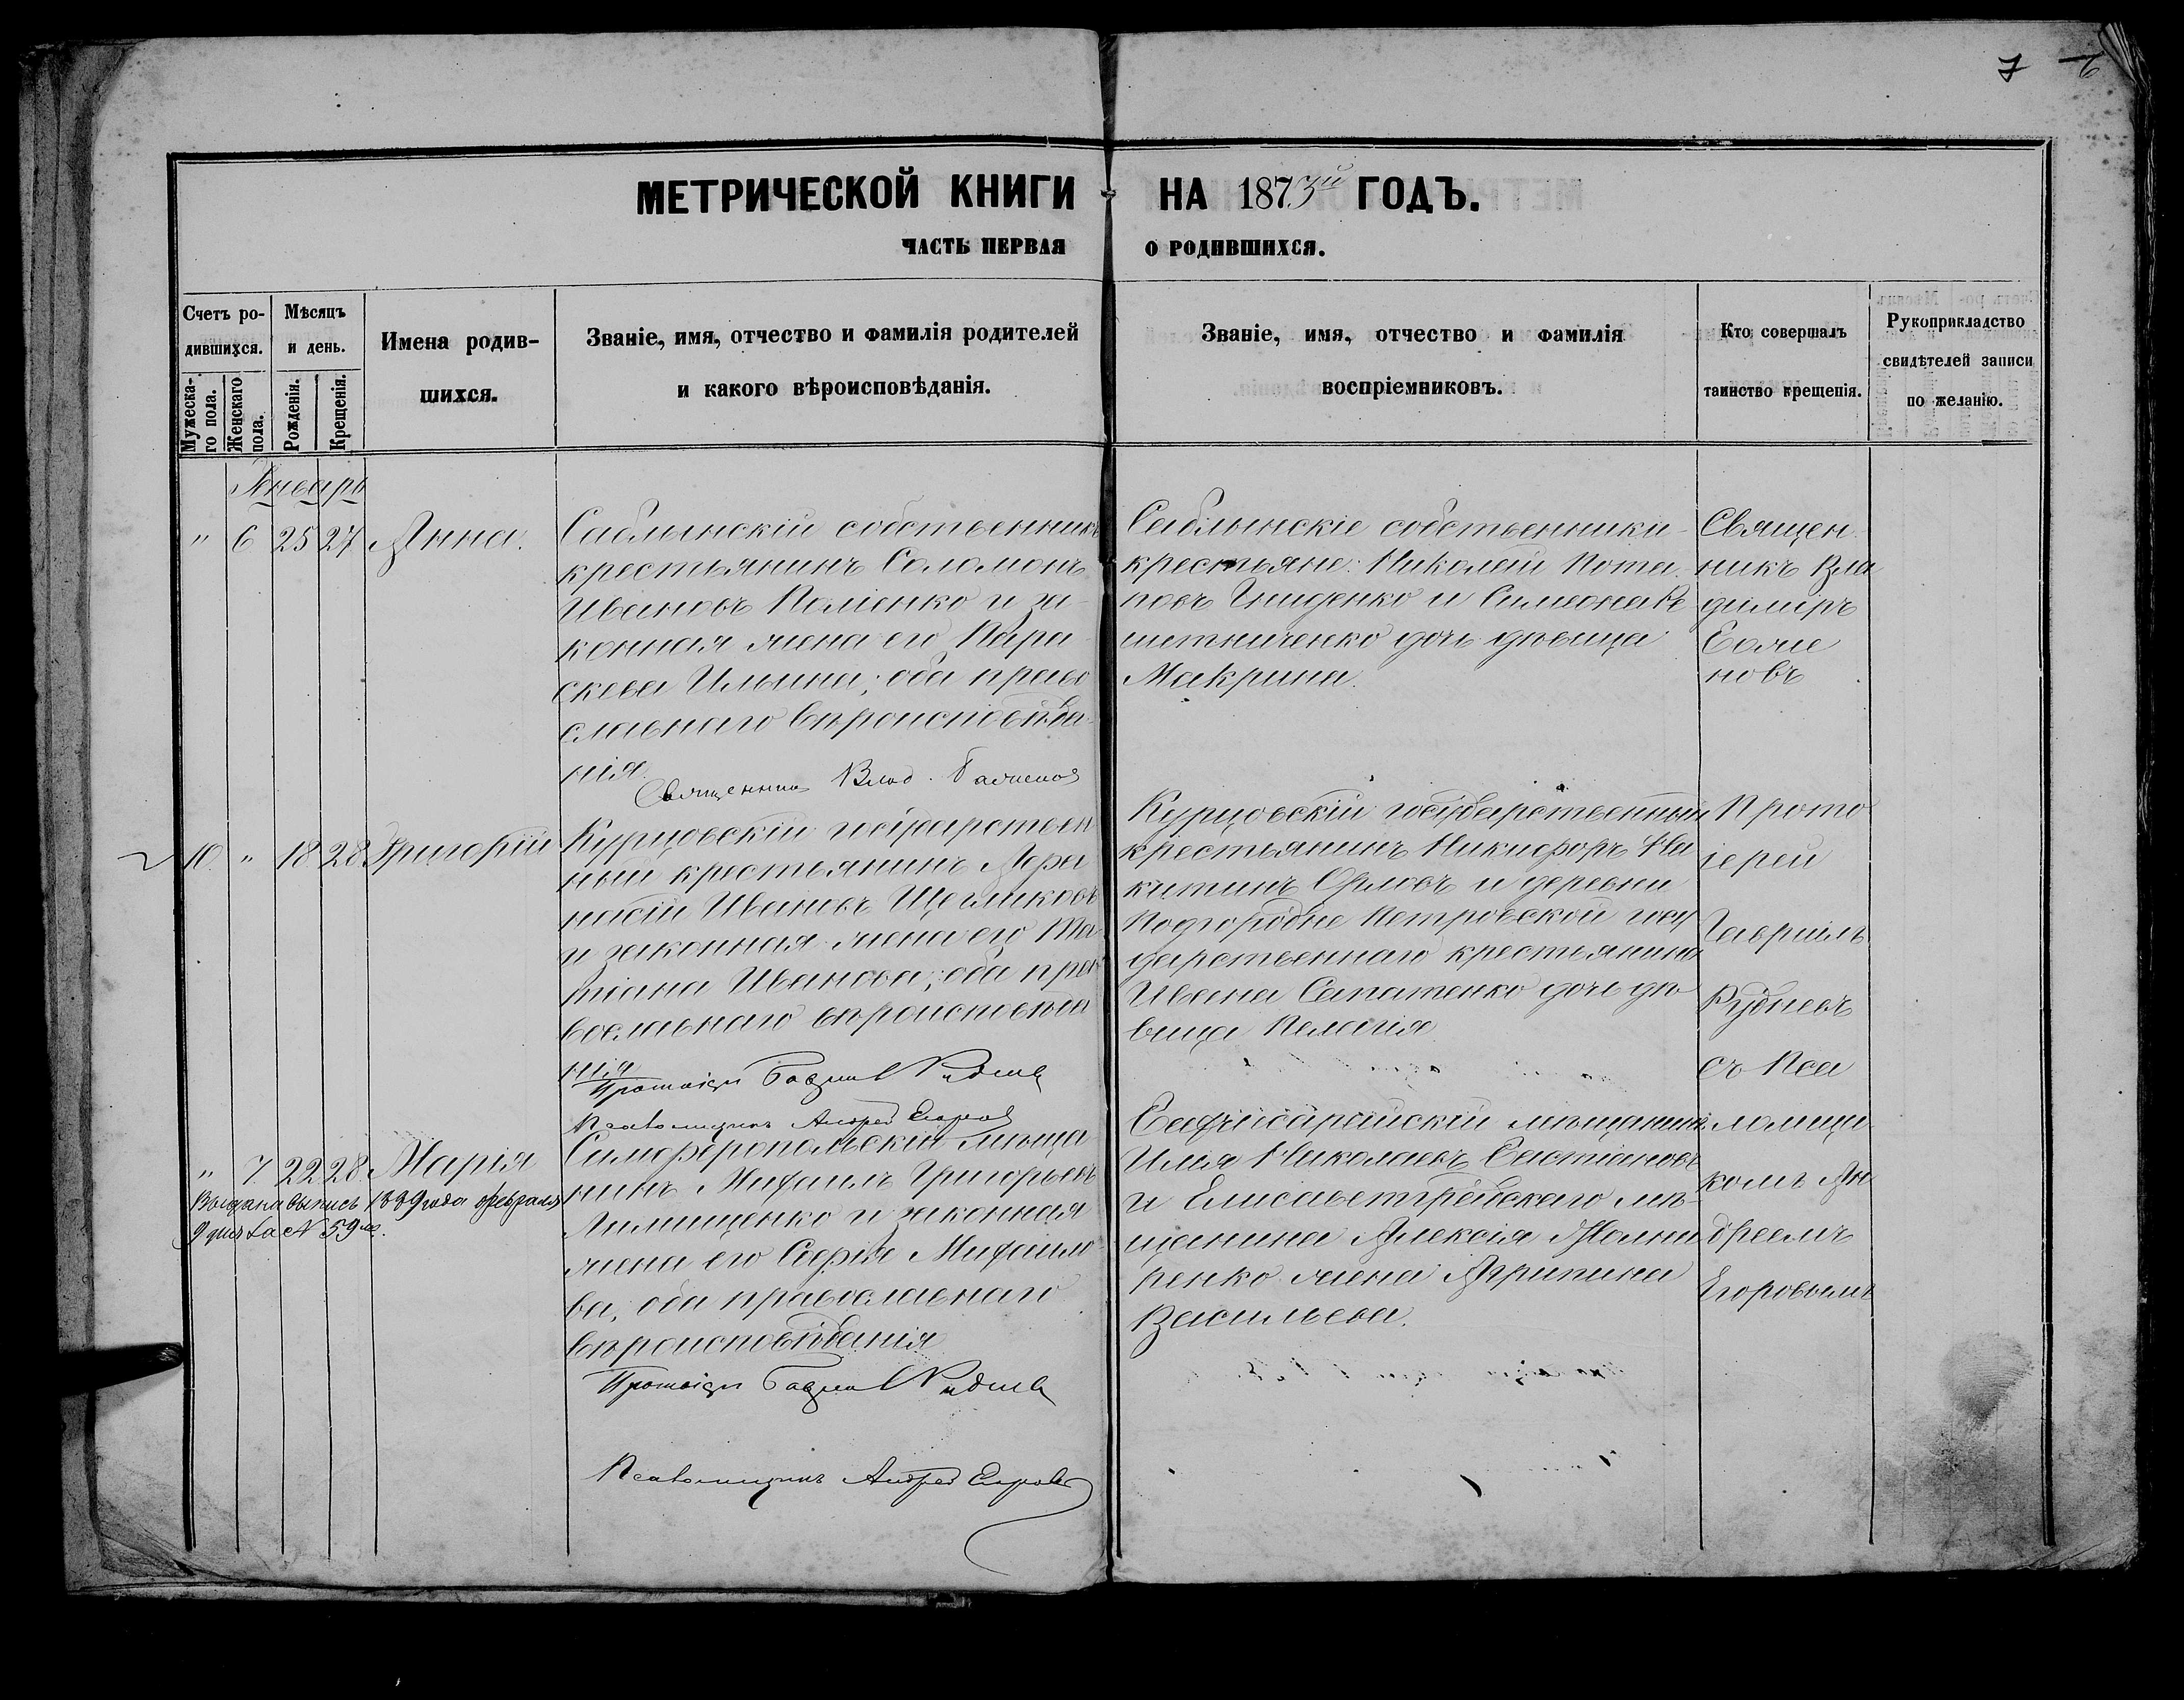 7 6
МЕТРИЧЕСКОЙ КНИГИ НА 1873й ГОДЪ.
ЧАСТЬ ПЕРВАЯ О РОДИВШИХСЯ.
Счетъ ро-
дившихся.
Мужеска-
го пола.
Женскаго
пола.
Мѣсяцъ
и день.
Рожденія.
Крещенія.
Имена родив-
шихся.
Званіе, имя, отчество и фамилія родителей
и какого вѣроисповѣданія.
Званіе, имя, отчество и фамилія
воспріемниковъ.
Кто совершалъ
таинство крещенія.
Рукоприкладство
свидѣтелей записи
по желанію.
Январь
" 6 25 27 Анна.
Саблынскій собственникъ
крестьянинъ Соломонъ
Ивановъ Паліенко и за-
конная жена его Пара-
скева Ильина; оба право
славнаго вѣроисповѣда-
нія.
Священникъ Влад. Баженов
Саблынскіе собственники
крестьяне: Николай Пота
повъ Гниденко и Симеона
дочь дѣвица
Макрина.
Священ
никъ Вла
димиръ
Баже
новъ
10. " 18 28 Григорій
Курцовскій государствен
ный крестьянинъ Афа
насій Ивановъ Щегликовъ
и законная жена его Та
тіана Иванова; оба пра
вославнаго вѣроисповѣда
нія
Протоіерей Гавриил Руднев
Псаломщикъ Андрей Егоров
Курцовскій государственный
крестьянинъ Никифоръ Ни
китинъ Орловъ и деревни
Подгородне Петровской госу
дарственнаго крестьянина
Ивана Сапатенко дочь дѣ
вица Пелагія
Прото
іерей
Гавріилъ
Рудневъ
съ Пса
ломщи
комъ Ан
дреемъ
Егоровымъ
" 7. 22 28 Марія
Выдана выпись 1889 года февраля
9 дня за № 59м.
Симферопольскій мѣща
нинъ Михаилъ Григорьевъ
и законная
жена его Софія Михайло
ва; оба православнаго
вѣроисповѣданія
Протоіерей Гавриил Руднев
Псаломщикъ Андрей Егоров
Бахчисарайскій мѣщанинъ
Илія Николаевъ
и Елисаветградскаго мѣ
щанина Алексія
ренко жена Агрипина
Васильева.